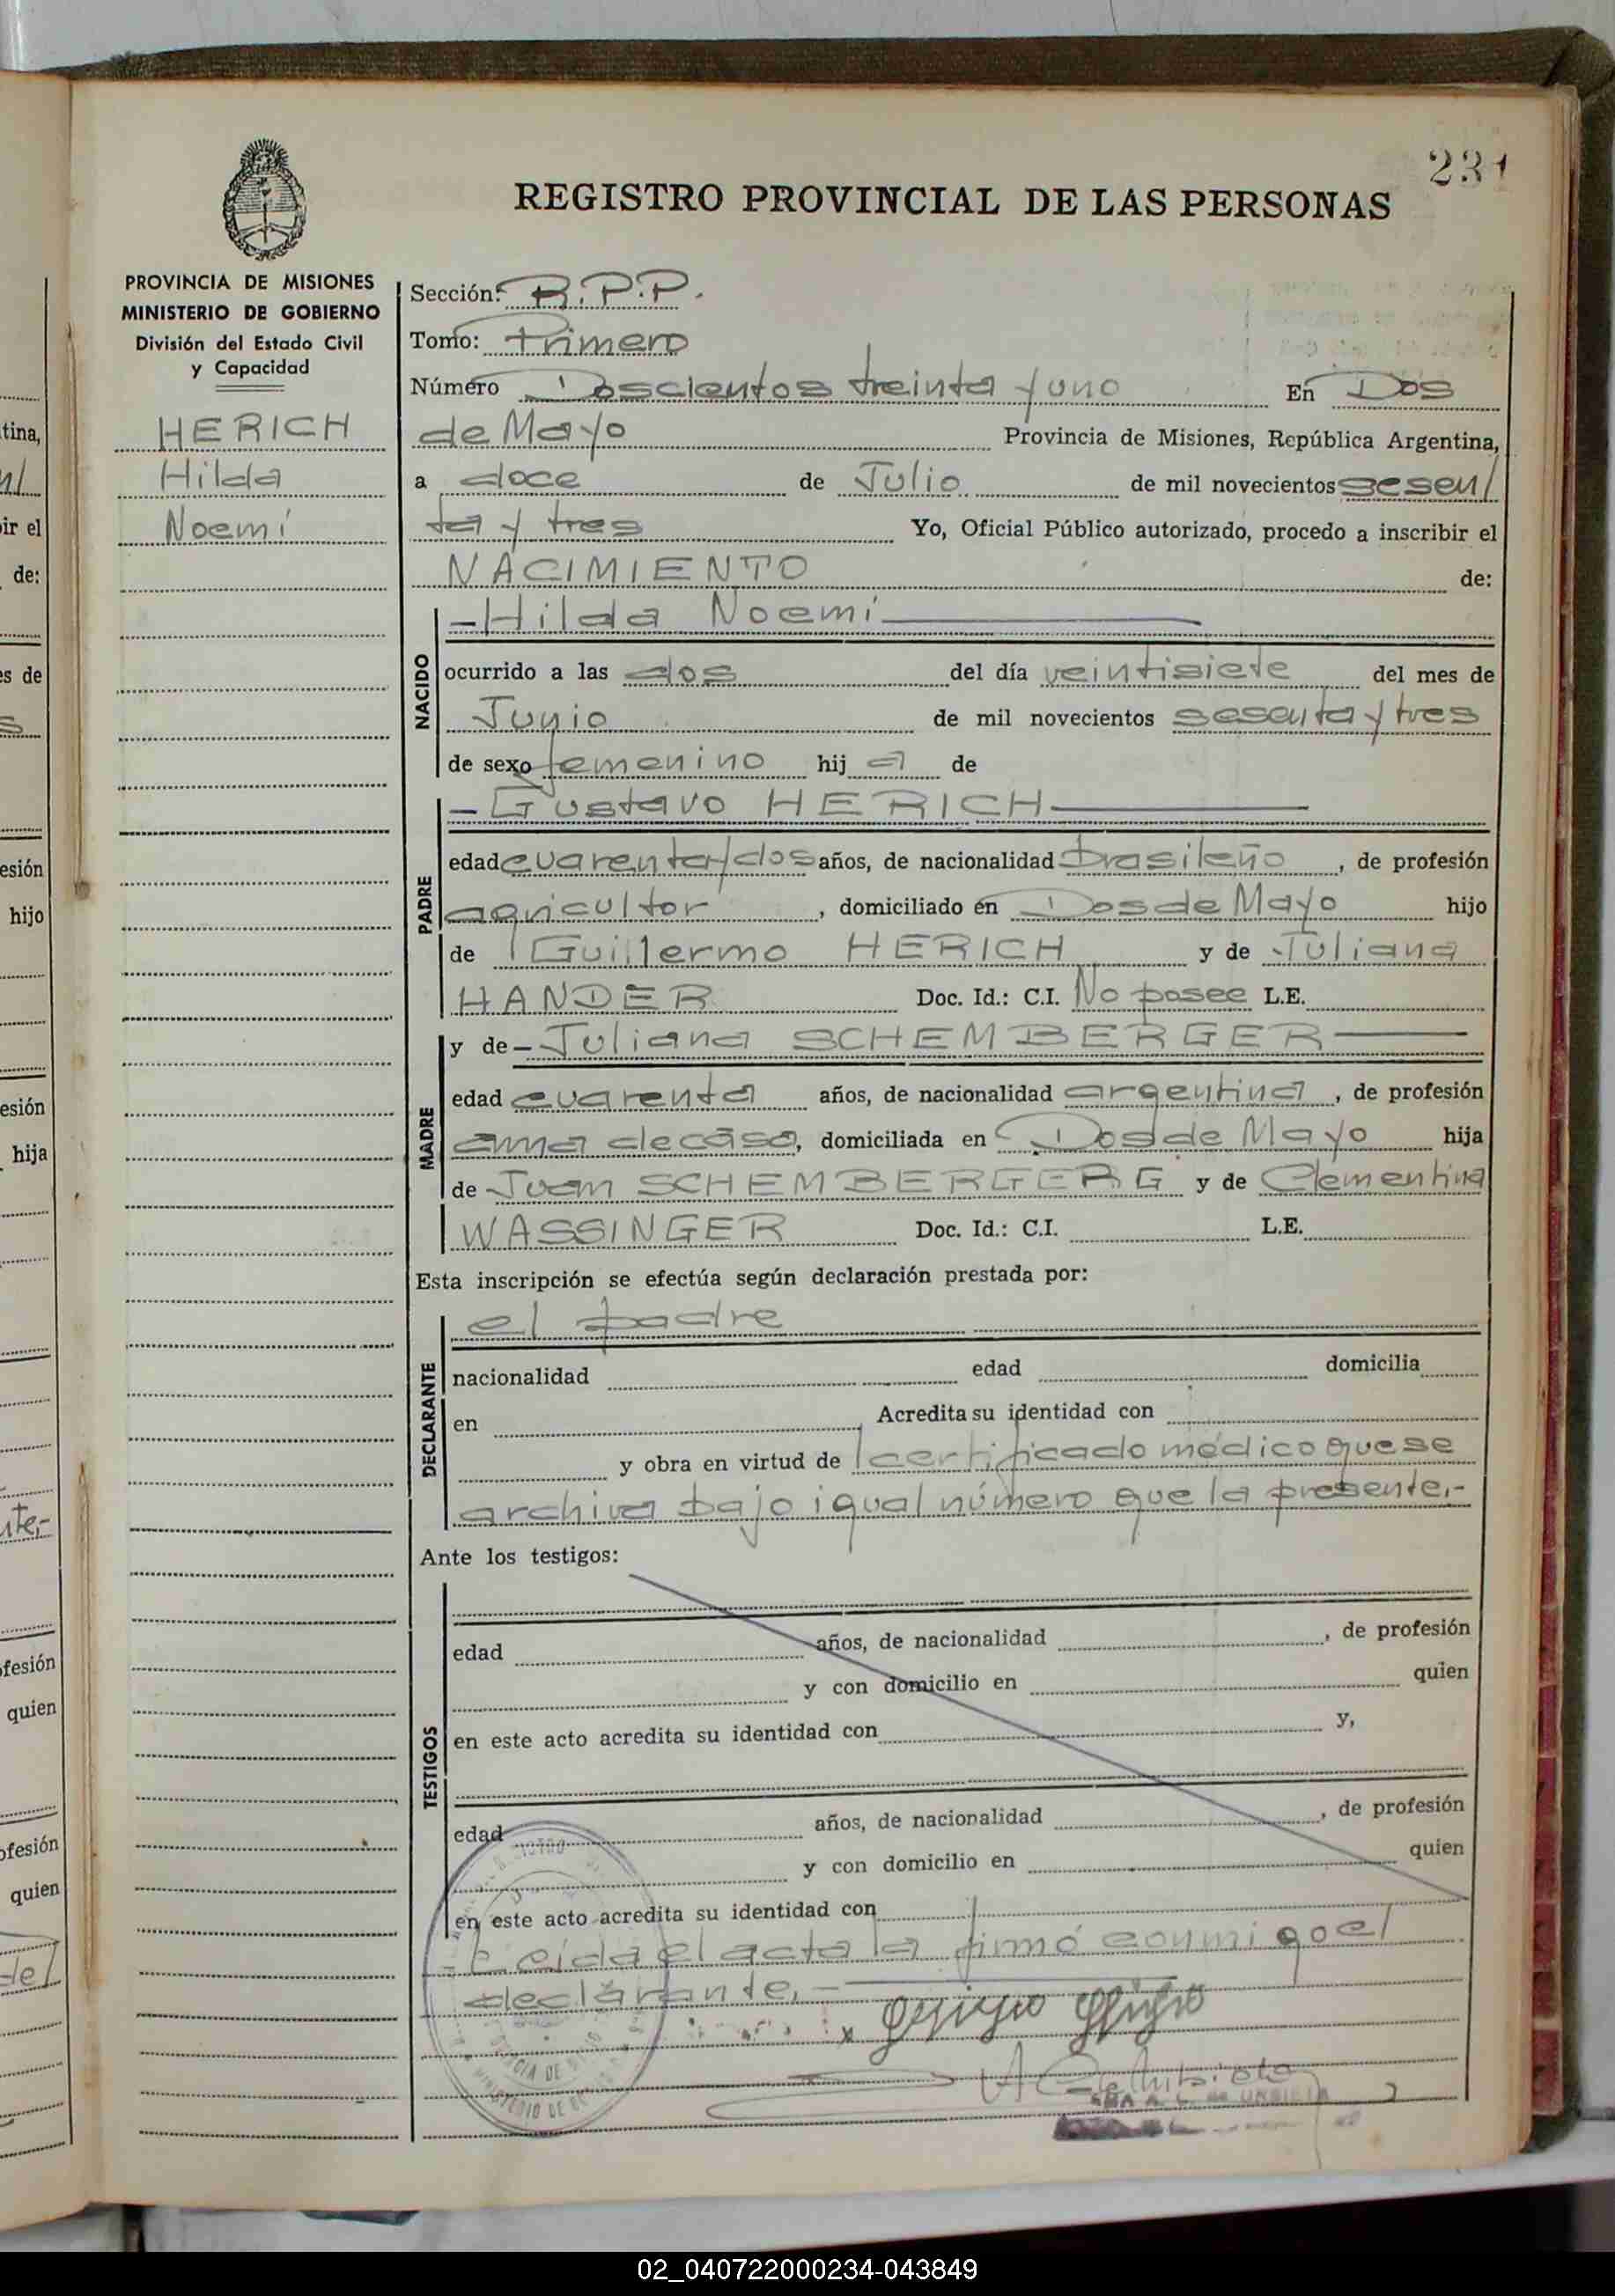 231
REGISTRO PROVINCIAL DE LAS PERSONAS
PROVINCIA DE MISIONES
MINISTERIO DE GOBIERNO
División del Estado Civil
y Capacidad
HERICH
Hilda
Noemí
Sección: R.P.P.
Tomo: Primero
Número Doscientos treinta y uno En Dos
de Mayo Provincia de Misiones, República Argentina,
a doce de Julio de mil novecientos sesen/
ta y tres Yo, Oficial Público autorizado, procedo a inscribir el
NACIMIENTO de:
NACIDO
-Hilda Noemí
ocurrido a las dos del día veintisiete del mes de
Junio de mil novecientos sesenta y tres
de sexo femenino hij a de
PADRE
-Gustavo HERICH
edad cuarenta y dos años, de nacionalidad brasileño, de profesión
agricultor, domiciliado en Dos de Mayo hijo
de Guillermo HERICH y de Juliana
HANDER Doc. Id.: C.I. No posee L.E.
MADRE
y de -Juliana SCHEMBERGER
edad cuarenta años, de nacionalidad argentina, de profesión
ama de casa, domiciliada en Dos de Mayo hija
de Juan SCHEMBERGERG y de Clementina
WASSINGER Doc. Id.: C.I. L.E.
Esta inscripción se efectúa según declaración prestada por:
DECLARANTE
el padre
nacionalidad edad domicilia
en Acredita su identidad con
y obra en virtud de certificado médico que se
archiva bajo igual número que la presente,-
Ante los testigos:
TESTIGOS
edad años, de nacionalidad , de profesión
y con domicilio en quien
en este acto acredita su identidad con y,
edad años, de nacionalidad , de profesión
y con domicilio en quien
en este acto acredita su identidad con
-Leída el acta la firmó conmigo el
declarante,-
x
02_040722000234-043849